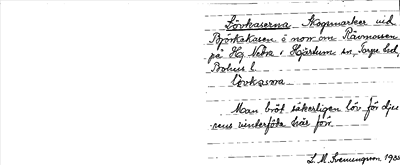 Lövkaserna Skogsmarker vid
Björkåkasen ö norr om Råvmossen
på Hg Nebra i Hjärtum sn, Torpe hd,
Bohus l.
lövkasna
Man bröt säkerligen löv för dju
rens vinterföda här förr.
L. M. Svenungsson 193